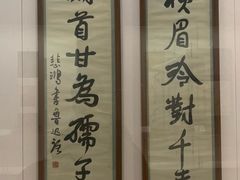 眉冷對千
首甘為孺子
悲鴻書魯迅